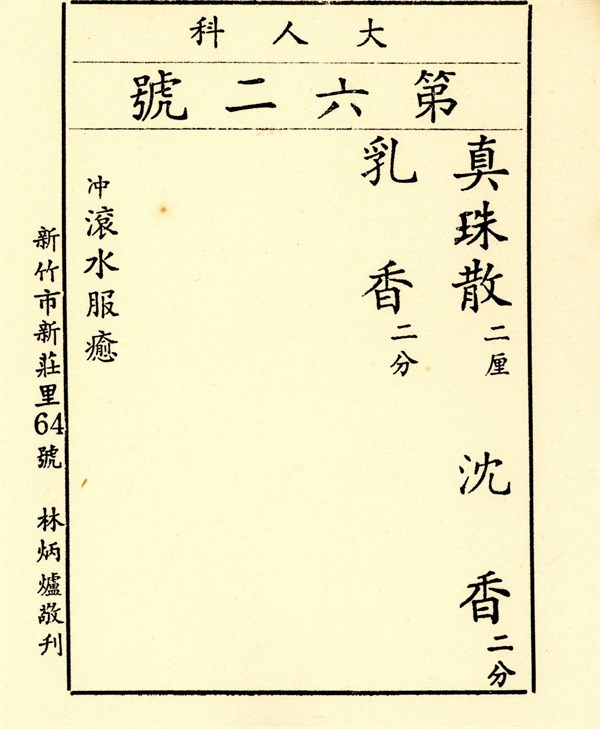 大人科
第六二號
真珠散二厘 沈香二分
乳香二分
冲滾水服癒
新竹市新莊里64號 林炳爐敬刊